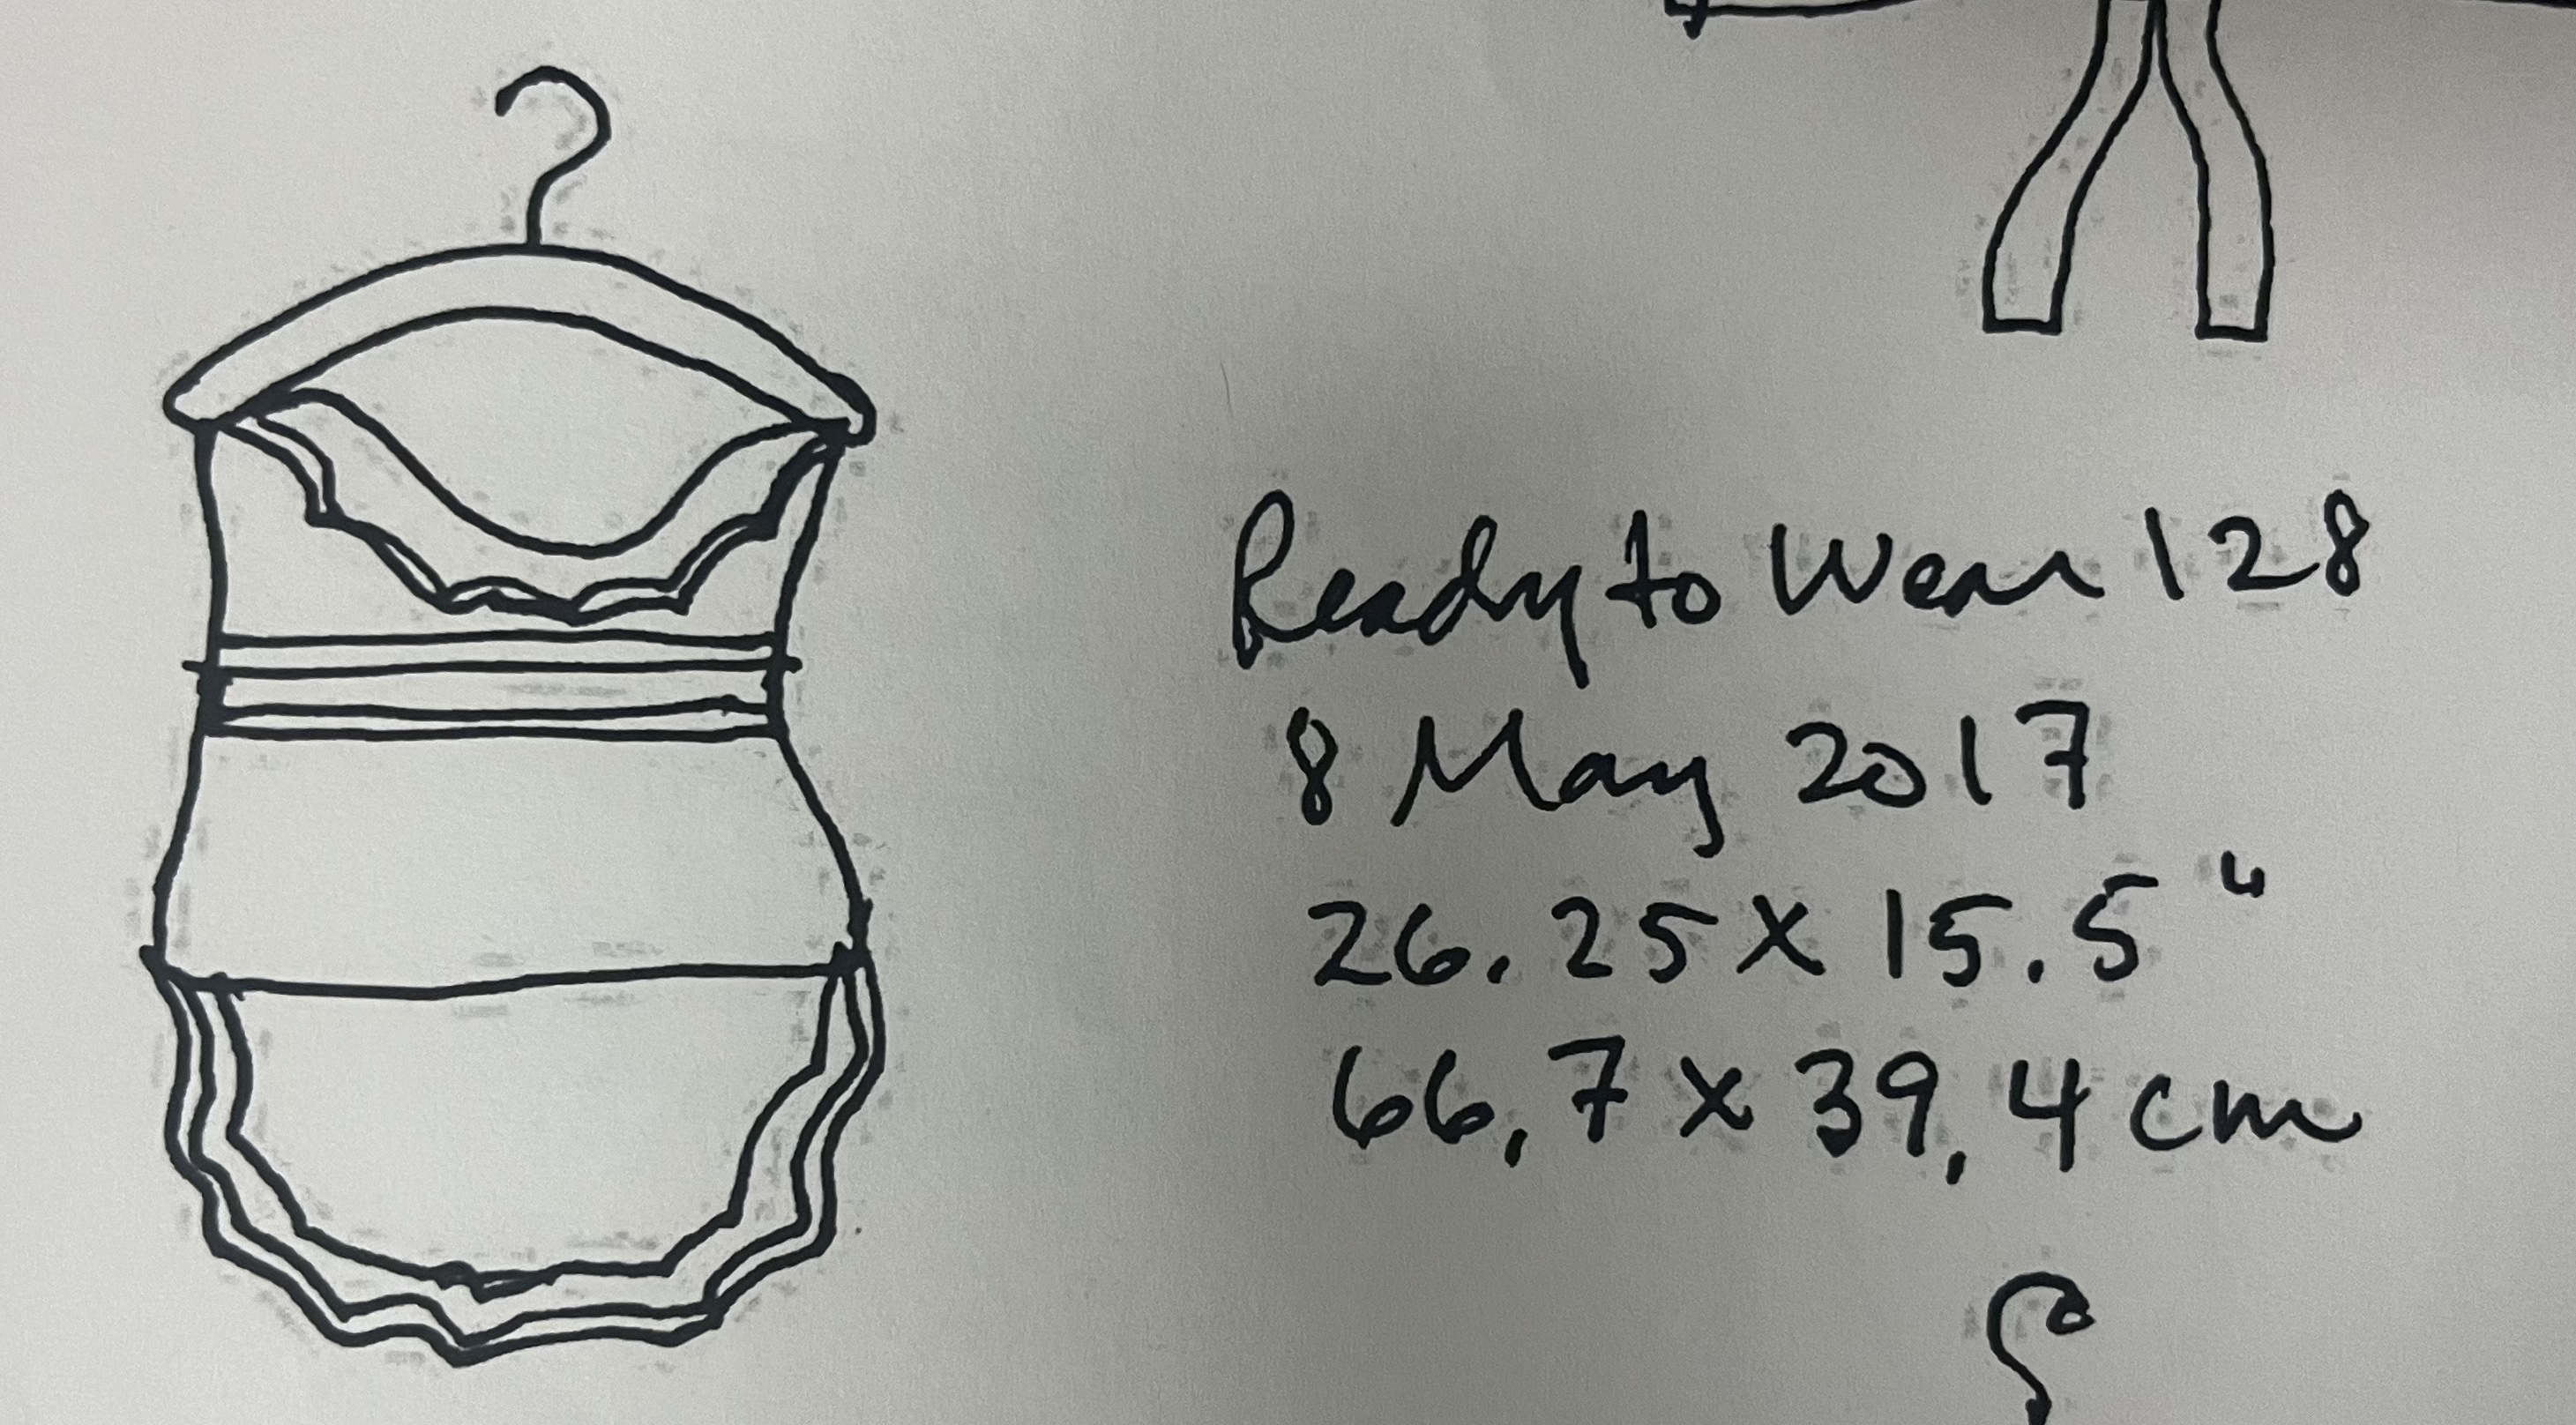 Ready to Wear 128
8 May 2017
26.25 x 15.5"
66,7 x 39,4 cm